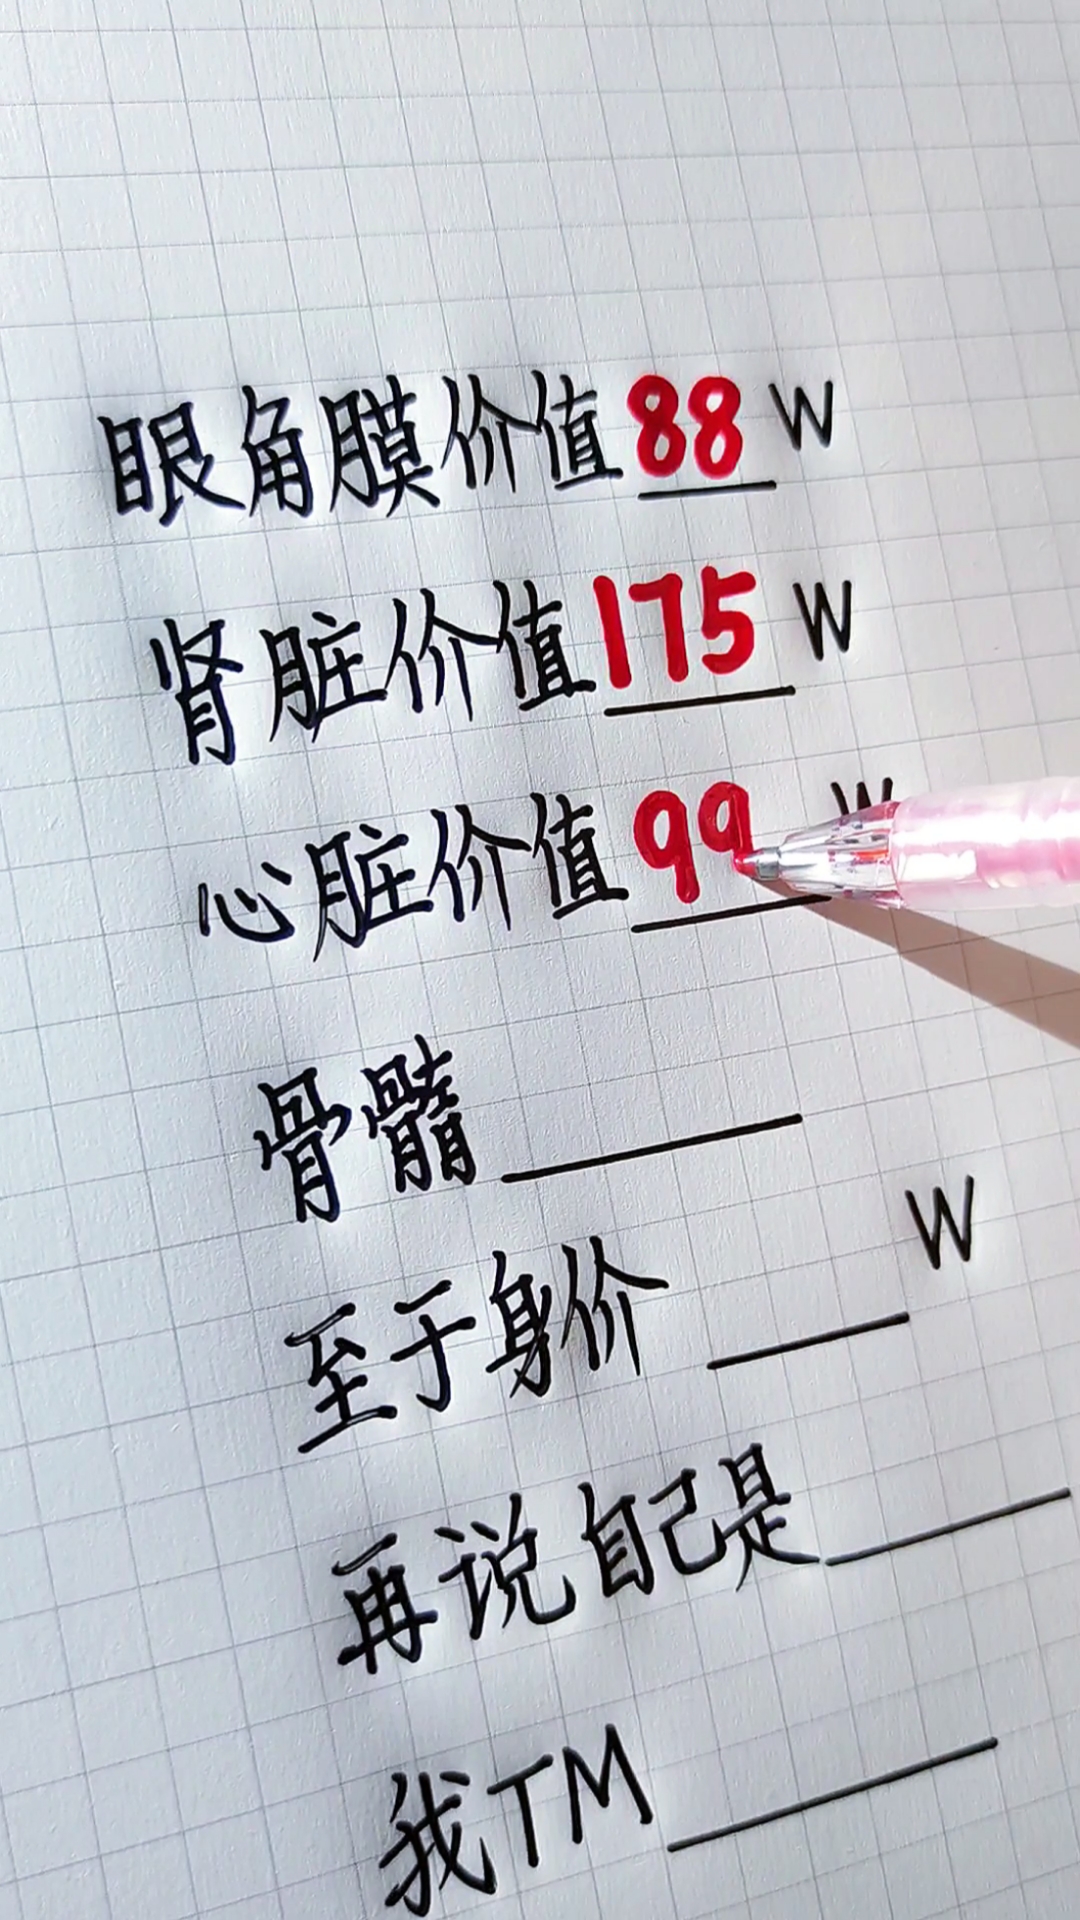 眼角膜价值88W
肾脏价值175W
心脏价值99W
骨髓
至于身价 W
再说自己是
我TM